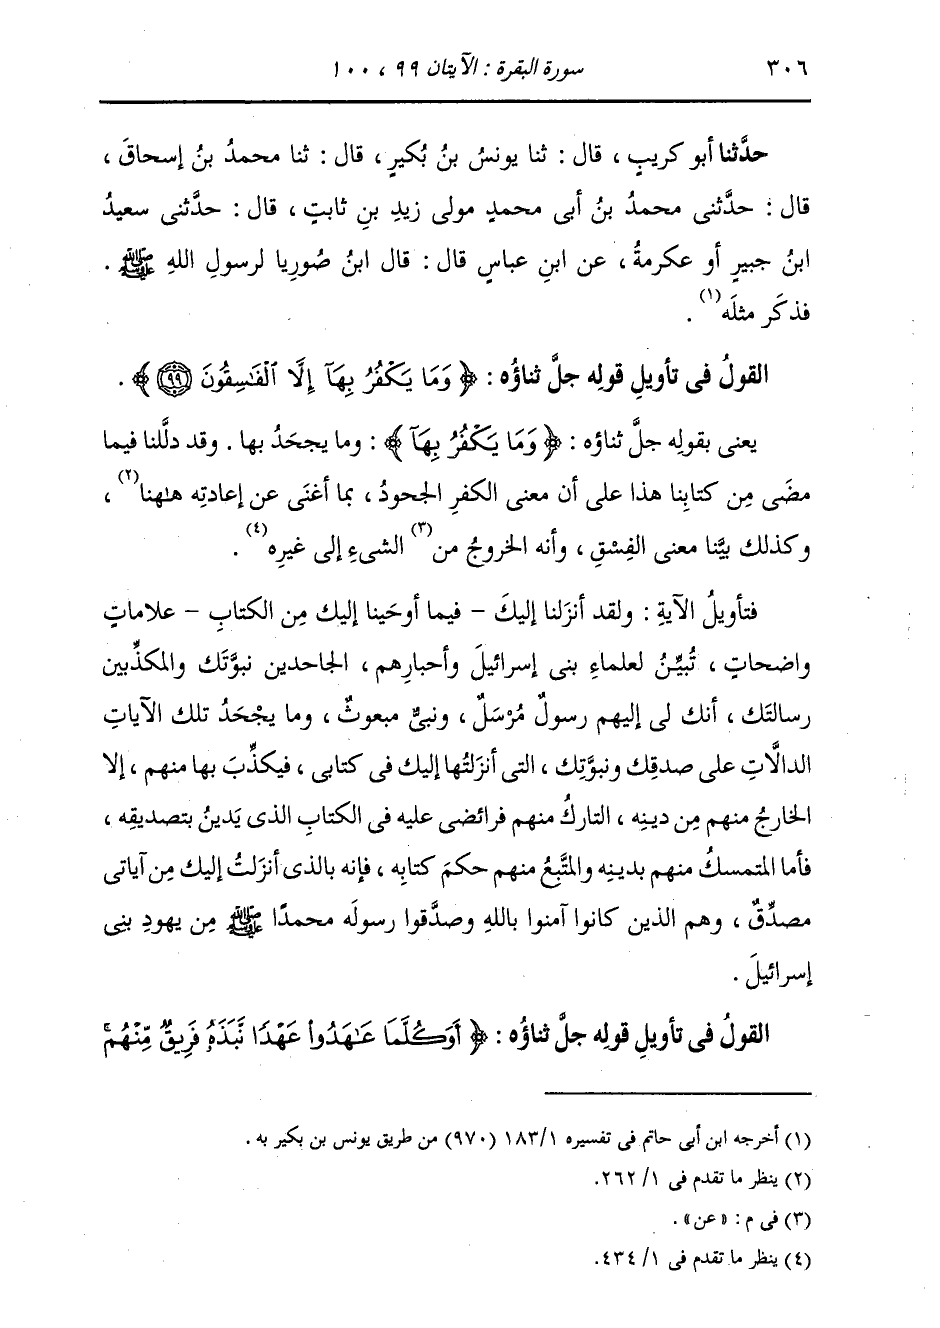 ٣٠٦ سورة البقرة : الآيتان ٩٩ ، ١٠٠
حدَّثنا أبو كريبٍ ، قال : ثنا يونسُ بنُ بُكيرٍ ، قال : ثنا محمدُ بنُ إسحاقَ ،
قال : حدَّثنى محمدُ بنُ أبى محمدٍ مولى زيدِ بنِ ثابتٍ ، قال : حدَّثنى سعيدُ
ابنُ جبيرٍ أو عكرمةُ ، عن ابنِ عباسٍ قال : قال ابنُ صُورِيا لرسولِ اللهِ ﷺ .
فذكَر مثلَه(١) .
القولُ فى تأويلِ قولِه جلَّ ثناؤُه : ﴿ وَمَا يَكْفُرُ بِهَآ إِلَّا ٱلْفَٰسِقُونَ ٩٩ ﴾ .
يعنى بقولِه جلَّ ثناؤه : ﴿ وَمَا يَكْفُرُ بِهَآ ﴾ : وما يجحَدُ بها . وقد دلَّلنا فيما
مضَى مِن كتابِنا هذا على أن معنى الكفرِ الجحودُ ، بما أغنَى عن إعادتِه هلهنا(٢) ،
وكذلك بيَّنا معنى الفِسْقِ ، وأنه الخروجُ من(٣) الشىءِ إلى غيرِه(٤) .
فتأويلُ الآيةِ : ولقد أنزَلنا إليكَ – فيما أوحَينا إليك مِن الكتابِ – علاماتٍ
واضحاتٍ ، تُبيِّنُ لعلماءِ بنى إسرائيلَ وأحبارِهم ، الجاحدين نبوَّتَك والمكذِّبين
رسالتَك ، أنك لى إليهم رسولٌ مُرْسَلٌ ، ونبىٌّ مبعوثٌ ، وما يجْحَدُ تلك الآياتِ
الدالَّاتِ على صدقِك ونبوَّتِك ، التى أنزَلتُها إليك فى كتابى ، فيكذِّبَ بها منهم ، إلا
الخارجُ منهم مِن دينِه ، التاركُ منهم فرائضى عليه فى الكتابِ الذى يَدينُ بتصديقِه ،
فأما المتمسكُ منهم بدينِه والمتَّبِعُ منهم حكمَ كتابِه ، فإنه بالذى أنزَلتُ إليك مِن آياتى
مصدِّقٌ ، وهم الذين كانوا آمنوا باللهِ وصدَّقوا رسولَه محمدًا ﷺ مِن يهودِ بنى
إسرائيلَ .
القولُ فى تأويلِ قولِه جلَّ ثناؤُه : ﴿ أَوَكُلَّمَا عَٰهَدُوا۟ عَهْدًا نَّبَذَهُۥ فَرِيقٌ مِّنْهُمۚ
(١) أخرجه ابن أبى حاتم فى تفسيره ١/١٨٣ (٩٧٠) من طريق يونس بن بكير به .
(٢) ينظر ما تقدم فى ١/ ٢٦٢.
(٣) فى م : «عن» .
(٤) ينظر ما تقدم فى ١/ ٤٣٤.